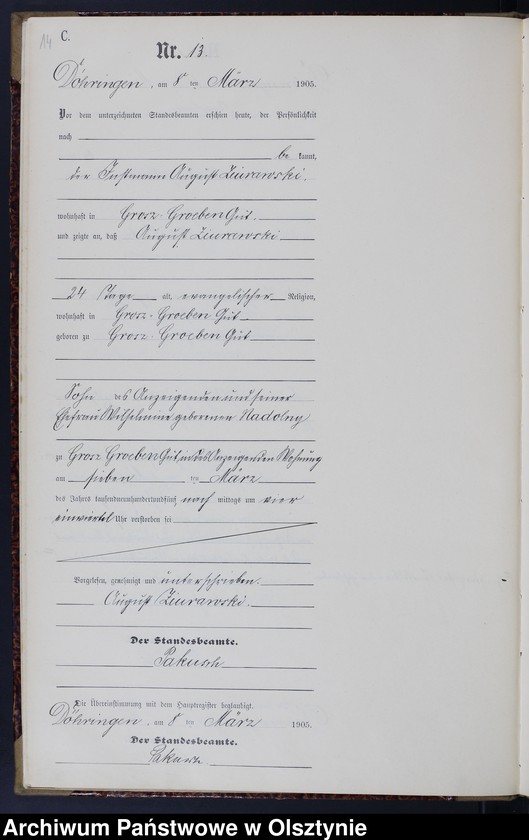 14
C.
Nr. 13.
Döhringen, am 8 ten März 1905.
Vor dem unterzeichneten Standesbeamten erschien heute, der Persönlichkeit
nach
be kannt,
der Instmann August Ziurawski.
wohnhaft in Grosz-Groeben Gut.
und zeigte an, daß August Ziurawski
24 Tage alt, evangelischer Religion,
wohnhaft in Grosz-Groeben Gut
geboren zu Grosz-Groeben Gut
Sohn des Anzeigenden und seiner
Ehefrau Wilhelmine geborenen Nadolny
zu Grosz Groeben Gut, in des Anzeigenden Wohnung
am sieben ten März
des Jahres tausendneunhundertundfünf, nach mittags um vier
einviertel Uhr verstorben sei
Vorgelesen, genehmigt und unterschrieben.
August Ziurawski.
Der Standesbeamte.
Pakusch
Die Übereinstimmung mit dem Hauptregister beglaubigt.
Döhringen, am 8 ten März 1905.
Der Standesbeamte.
Archiwum Państwowe w Olsztynie